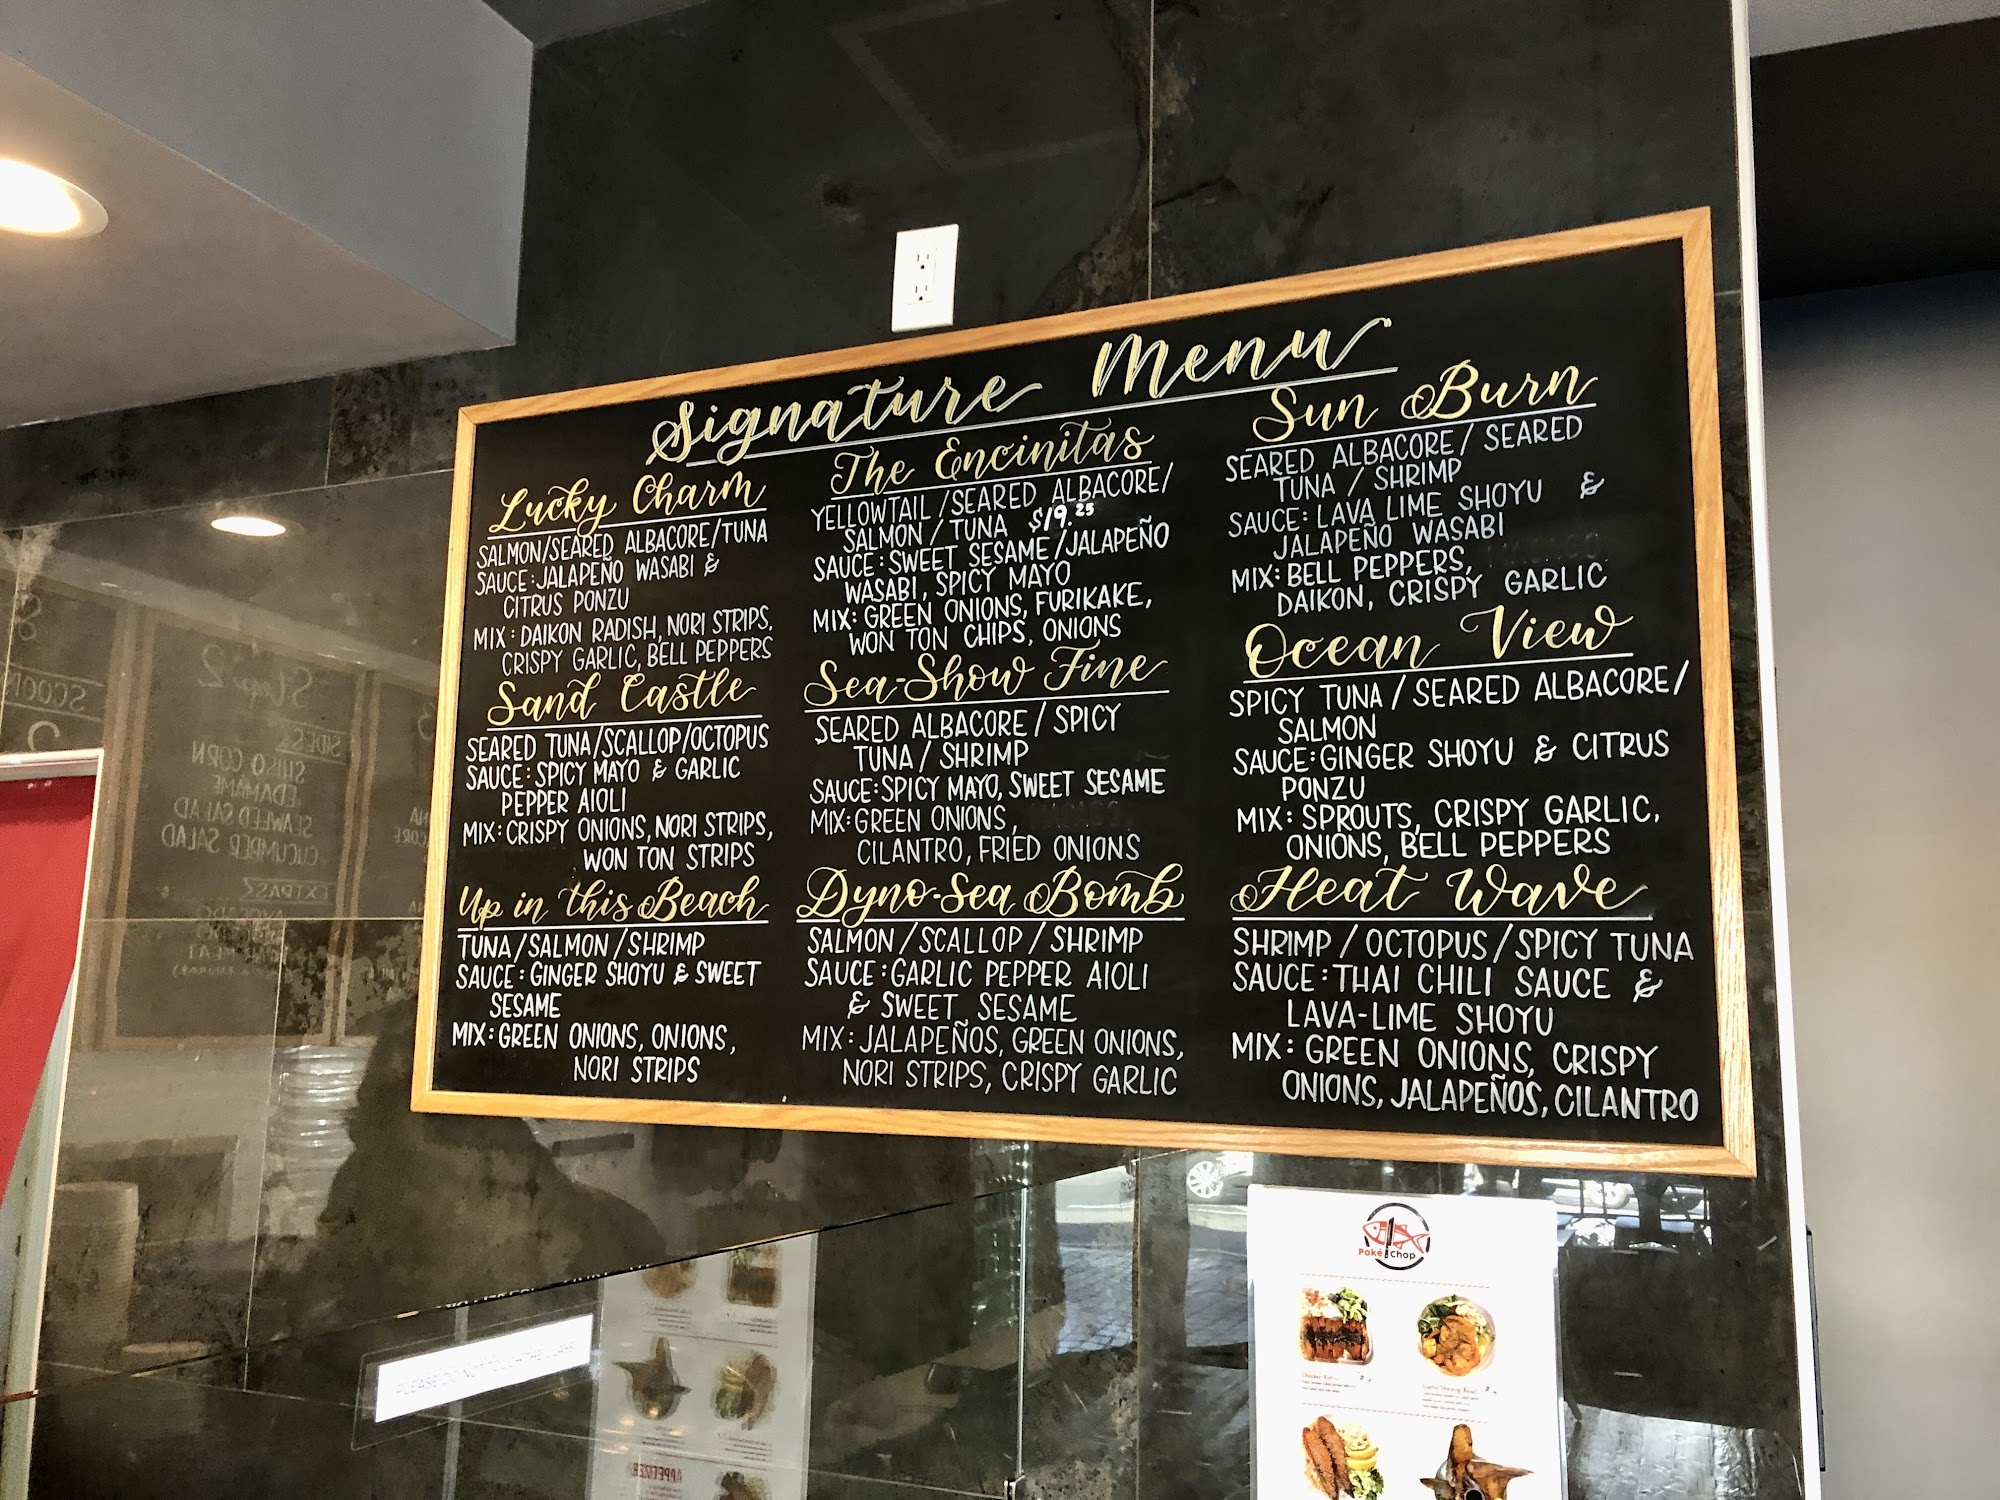 Signature Menu
Lucky Charm
SALMON/SEARED ALBACORE/TUNA
SAUCE: JALAPEÑO WASABI &
CITRUS PONZU
MIX: DAIKON RADISH, NORI STRIPS,
CRISPY GARLIC, BELL PEPPERS
Sand Castle
SEARED TUNA/SCALLOP/OCTOPUS
SAUCE: SPICY MAYO & GARLIC
PEPPER AIOLI
MIX: CRISPY ONIONS, NORI STRIPS,
WON TON STRIPS
Up in this Beach
TUNA/SALMON/SHRIMP
SAUCE: GINGER SHOYU & SWEET
SESAME
MIX: GREEN ONIONS, ONIONS,
NORI STRIPS
The Encinitas
YELLOWTAIL/SEARED ALBACORE/
SALMON/TUNA $19.25
SAUCE: SWEET SESAME/JALAPEÑO
WASABI, SPICY MAYO
MIX: GREEN ONIONS, FURIKAKE,
WON TON CHIPS, ONIONS
Sea-Show Fine
SEARED ALBACORE/SPICY
TUNA/SHRIMP
SAUCE: SPICY MAYO, SWEET SESAME
MIX: GREEN ONIONS,
CILANTRO, FRIED ONIONS
Dyno-Sea Bomb
SALMON/SCALLOP/SHRIMP
SAUCE: GARLIC PEPPER AIOLI
& SWEET SESAME
MIX: JALAPEÑOS, GREEN ONIONS,
NORI STRIPS, CRISPY GARLIC
Sun Burn
SEARED ALBACORE/SEARED
TUNA/SHRIMP
SAUCE: LAVA LIME SHOYU &
JALAPEÑO WASABI
MIX: BELL PEPPERS,
DAIKON, CRISPY GARLIC
Ocean View
SPICY TUNA/SEARED ALBACORE/
SALMON
SAUCE: GINGER SHOYU & CITRUS
PONZU
MIX: SPROUTS, CRISPY GARLIC,
ONIONS, BELL PEPPERS
Heat Wave
SHRIMP/OCTOPUS/SPICY TUNA
SAUCE: THAI CHILI SAUCE &
LAVA-LIME SHOYU
MIX: GREEN ONIONS, CRISPY
ONIONS, JALAPEÑOS, CILANTRO
Step 2
SIDES
SHISO CORN
EDAMAME
SEAWEED SALAD
CUCUMBER SALAD
EXTRAS
AVOCADO
PLEASE DO NOT TOUCH THE GLASS
Poké Chop